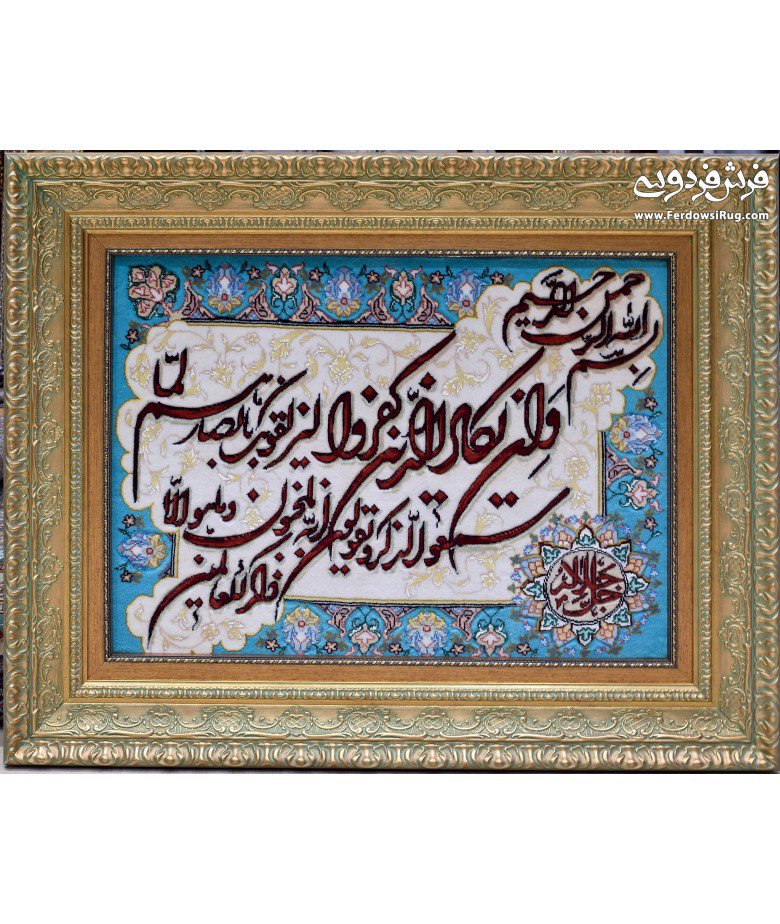 فرش فردوسی
www.FerdowsiRug.com
بسم الله الرحمن الرحیم
وان یکاد الذین کفروا لیزلقونک بابصارهم لما
سمعوا الذکر و یقولون انه لمجنون وما هو الا
ذکر للعالمین
جل جلاله